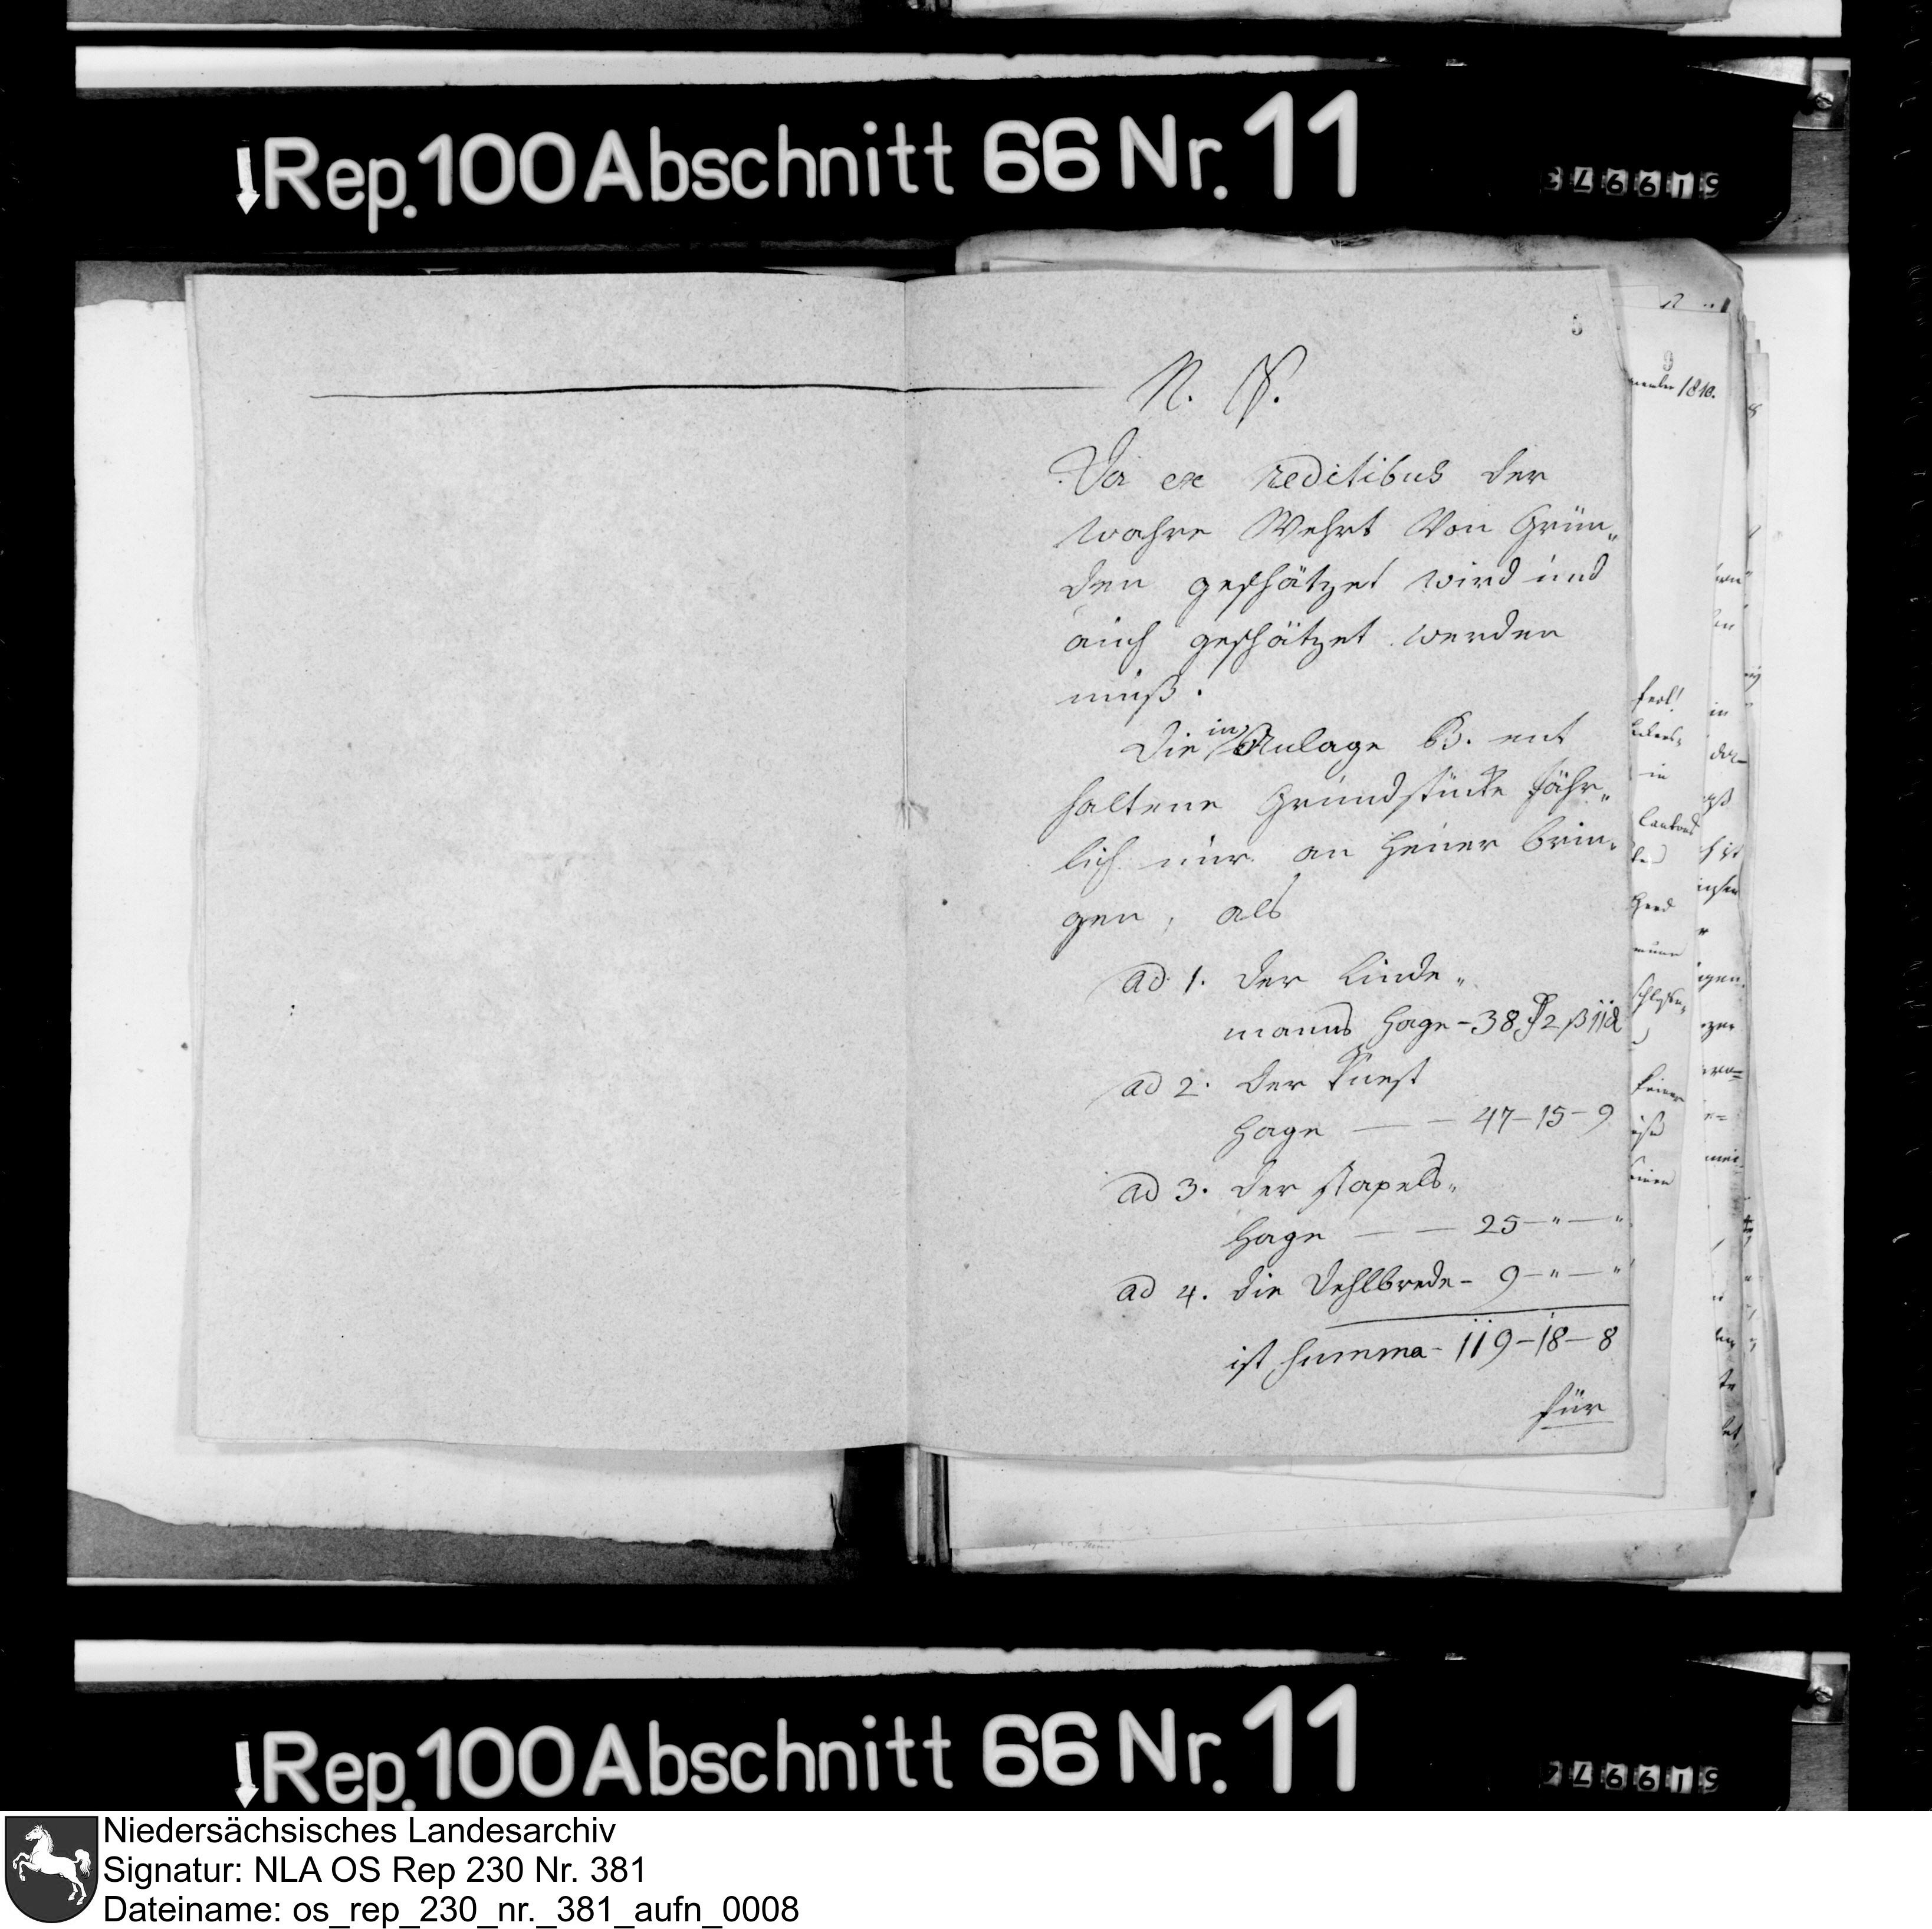 ↓Rep.100 Abschnitt 66 Nr. 11
5
N. S.
Da ex reditibus der
wahre Wehrt Von Grün„
den geschätzet wird und
auch geschätzet werden
muß.
Die in Anlage B. ent
haltene Grundstücke jähr„
lich nur an Heuer brin„
gen, als
ad 1. der Linde„
manns Hage - 38 2 ß 11 d
ad 2. der
Hage — — 47 - 15 - 9
ad 3. der Stapels„
Hage — — 25 - " — "
ad 4. die Dehlbrede - 9 - " — "
ist Summa - 119 - 18 - 8
für
9
1810.
↓Rep.100 Abschnitt 66 Nr. 11
Niedersächsisches Landesarchiv
Signatur: NLA OS Rep 230 Nr. 381
Dateiname: os_rep_230_nr._381_aufn_0008